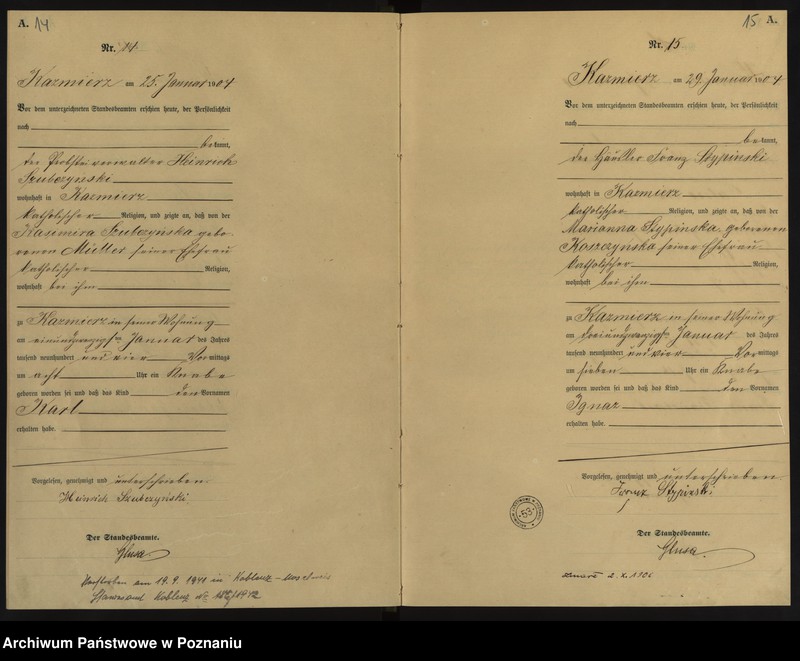 A. 14
Nr. 14.
Kazmierz am 25. Januar 1904
Vor dem unterzeichneten Standesbeamten erschien heute, der Persönlichkeit
nach
bekannt,
der Probsteiverwalter Heinrich
Szubczynski
wohnhaft in Kazmierz
katholischer Religion, und zeigte an, daß von der
Kasimira Szubczyńska gebo
renen Müller seiner Ehefrau
katholischer Religion,
wohnhaft bei ihm
zu Kazmierz in seiner Wohnung
am einundzwanzigsten Januar des Jahres
tausend neunhundert und vier Vormittags
um acht Uhr ein Knabe
geboren worden sei und daß das Kind den Vornamen
Karl
erhalten habe.
Vorgelesen, genehmigt und unterschrieben.
Heinrich Szubczyński
Der Standesbeamte.
Glusa
am 19. 9. 1941 in Koblenz-
Standesamt Koblenz Nr.
15 A.
Nr. 15
Kazmierz am 29. Januar 1904
Vor dem unterzeichneten Standesbeamten erschien heute, der Persönlichkeit
nach
bekannt,
der Häusler Franz Stypinski
wohnhaft in Kazmierz
katholischer Religion, und zeigte an, daß von der
Marianna Stypinska geborenen
Koszczynska seiner Ehefrau
katholischer Religion,
wohnhaft bei ihm
zu Kazmierz in seiner Wohnung
am dreiundzwanzigsten Januar des Jahres
tausend neunhundert und vier Vormittags
um sieben Uhr ein Knabe
geboren worden sei und daß das Kind den Vornamen
Ignaz
erhalten habe.
Vorgelesen, genehmigt und unterschrieben.
Franz Stypinski
53
Der Standesbeamte.
Glusa
Archiwum Państwowe w Poznaniu